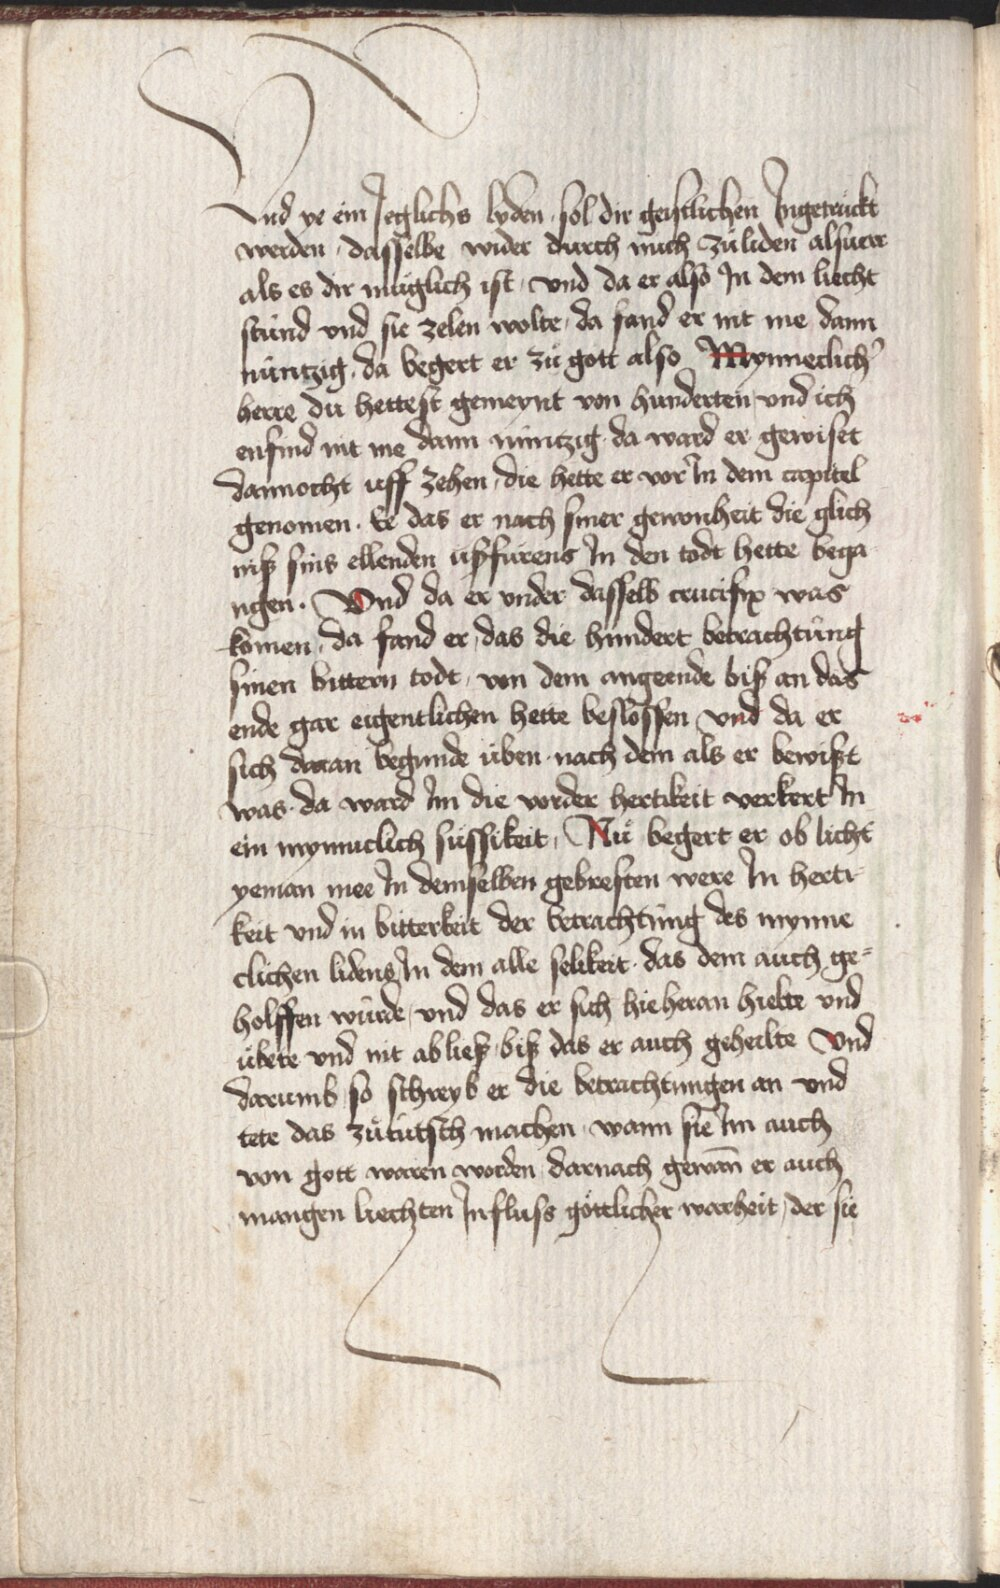 Vnd ye ein Jeglichs lyden sol dir geistlichen Ingetruckt
werden dasselbe wider durch mich zůliden alsuerr
als es dir můglich ist / vnd da er also In dem liecht
stund vnd sie zelen wolte / da fand er nit me dann
nuntzig. da begert er zů gott also Mynneclich'
herre du hettest gemeynt von hunderten vnd ich
enfind nit me dann nuntzig da ward er gewiset
dannocht uff zehen / die hette er vor In dem capitel
genomen. Ee das er nach siner gewonheit die glich
niß sins ellenden ußfurens In den todt hette bega
ngen. Vnd da er vnder dasselb crucifix was
komen / da fand er / das die hundert betrachtung
sinen bittern todt / von dem angeende biß an das
ende gar eigentlichen hette beslossen vnd da er
sich daran begunde uben nach dem als er bewißt
was. da ward Im die vorder hertikeit verkert In
ein mynnclich sussikeit / Nů begert er ob licht
yeman mee In demselben gebresten were In herti
keit vnd in bitterkeit der betrachtung des mynne
clichen lidens In dem alle selikeit. das dem auch ge=
holffen wurde / vnd das er sich hie heran hielte vnd
ubete vnd nit abließ biß das er auch geheilte Vnd
darumb so schreyb er die betrachtungen an vnd
tete das zůtutsch machen wann sie Im auch
von gott waren worden darnach gewan̄ er auch
mangen liechten Influss gottlicher warheit / der sie